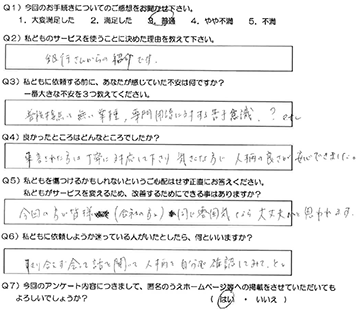 Q1）今回のお手続きについてのご感想をお聞かせ下さい。
1．大変満足した　2．満足した　3．普通　4．やや不満　5．不満
Q2）私どものサービスを使うことに決めた理由を教えて下さい。
銀行さんからの紹介です。
Q3）私どもに依頼する前に、あなたが感じていた不安は何ですか？
一番大きな不安を３つ教えてください。
普段接点の無い業種、専門用語に対する苦手意識、？
Q4）良かったところはどんなところでしたか？
丁寧に対応して下さり 人柄の良さが 安心できました。
Q5）私どもを傷つけるかもしれないというご心配はせず正直にお答えください。
私どもがサービスを変えるため、改善するためにできる事はありますか？
今回の方が皆様 同じ雰囲気なら 大丈夫かと思われます。
Q6）私どもに依頼しようか迷っている人がいたとしたら、何といいますか？
お会って話を聞いて 人柄を自分で確認してみて、と。
Q7）今回のアンケート内容につきまして、匿名のうえホームページ等への掲載をさせていただいても
よろしいでしょうか？　（ はい ・ いいえ ）